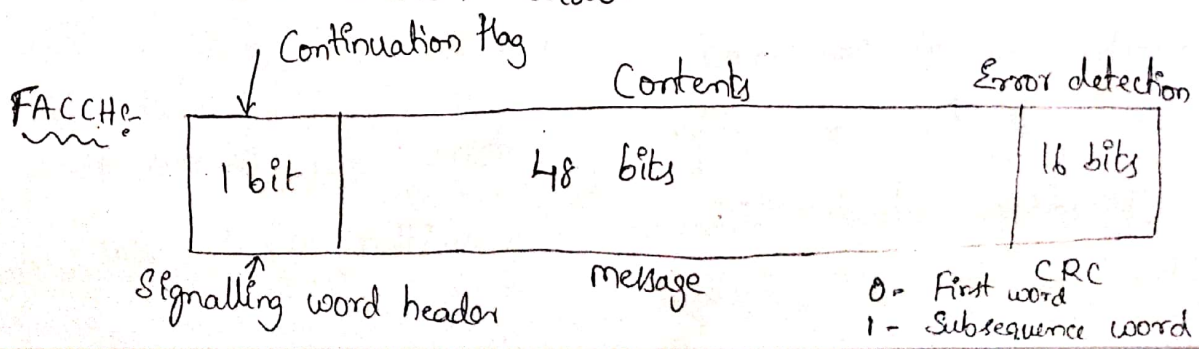 Continuation flag
FACCH:-
Contents
Error detection
1 bit
48 bits
16 bits
Signalling word header
message
CRC
0- First word
1- Subsequence word